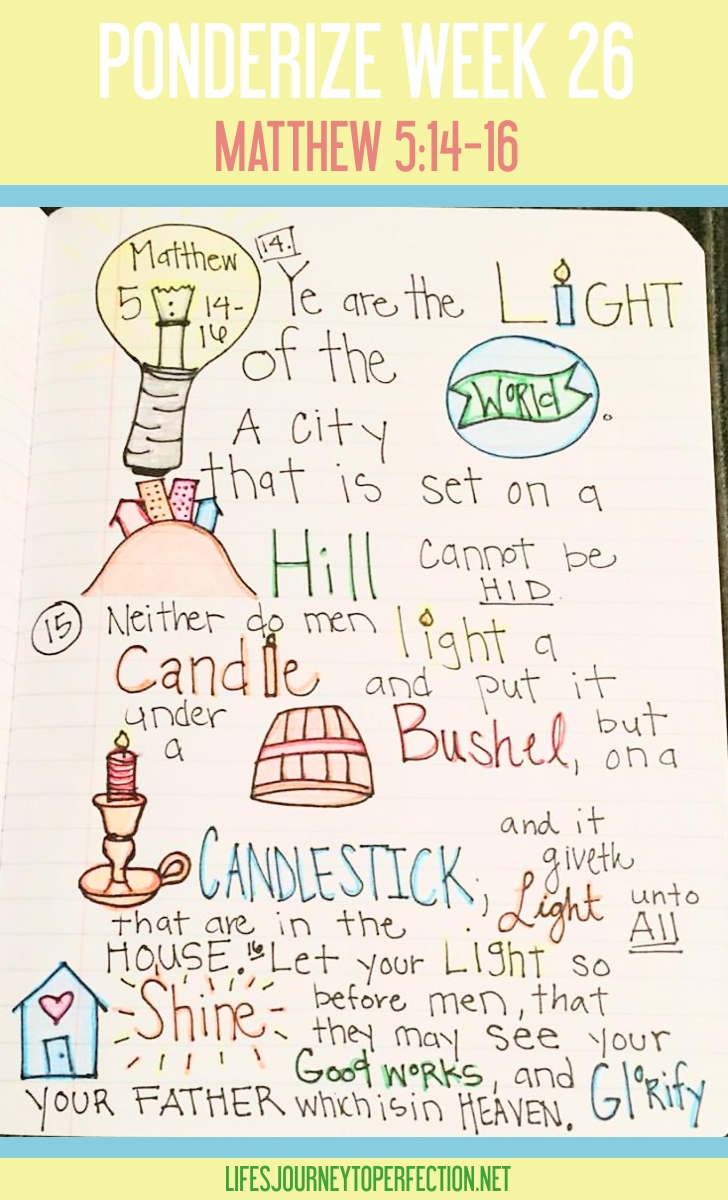 PONDERIZE WEEK 26
MATTHEW 5:14-16
Matthew
5 14-
16
14.
Ye are the LiGHT
of the WORld.
A City
that is set on a
Hill cannot be
HID.
15 Neither do men light a
Candle and put it
under a Bushel, but
on a
CANDLESTICK; and it
giveth
Light unto
All
that are in the
HOUSE. 16 Let your Light so
Shine before men, that
they may see your
Good woRKS, and GloRify
YOUR FATHER which is in HEAVEN.
LIFESJOURNEYTOPERFECTION.NET